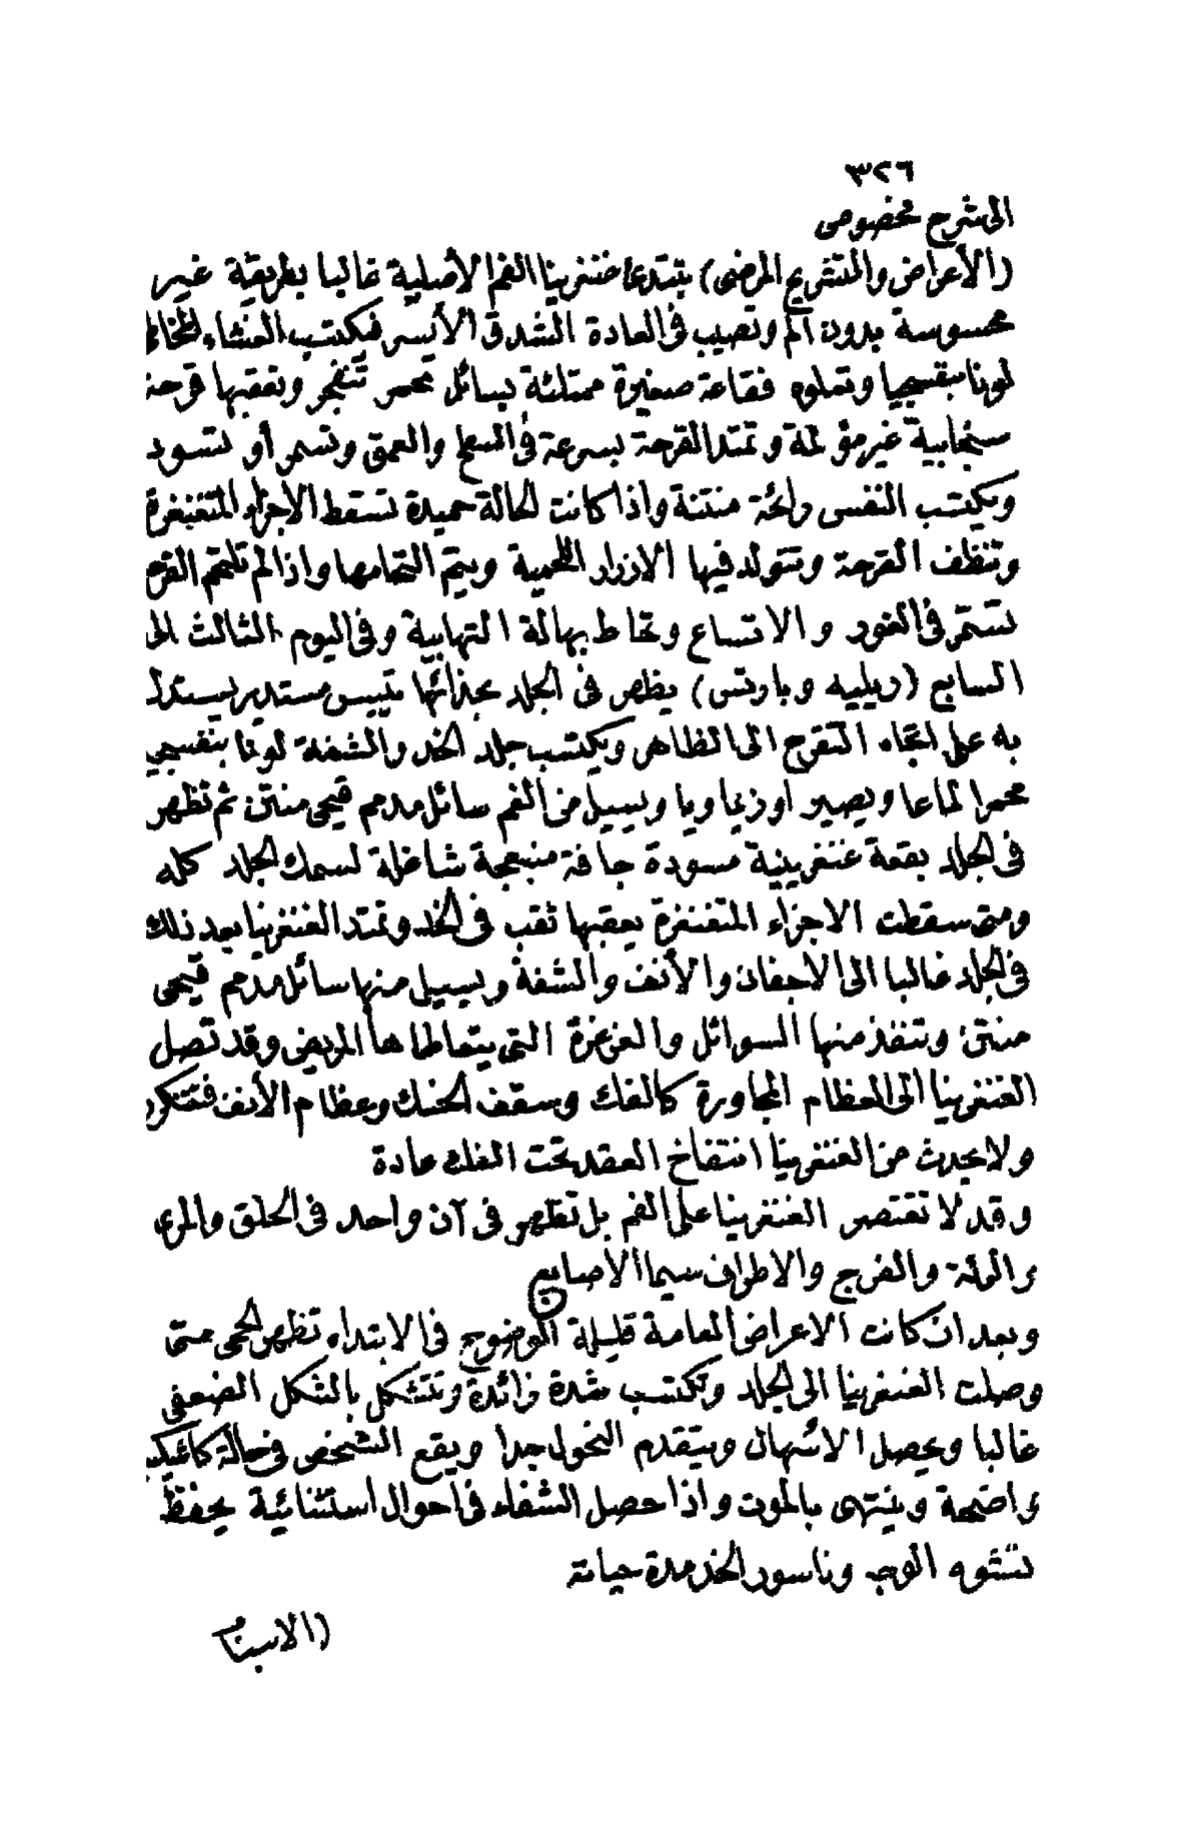 ٣٢٦
الى شرح مخصوصى
(الأعراض والتشريح المرضى) تبتدئ غنغرينا الفم الأصلية غالبا بطريقة غير
محسوسة بدون ألم وتصيب فى العادة الشدق الأيسر فيكتسب الغشاء المخاط
لونا بنفسجيا وتعلوه فقاعة صغيرة ممتلئة بسائل محمر تنفجر وتعقبها قرحة
سنجابية غير مؤلمة وتمتد القرحة بسرعة فى السطح والعمق وتسمر أو تسود
ويكتسب النفس رائحة منتنة واذا كانت الحالة حميدة تسقط الاجزاء المتغنغرة
وتنظف القرحة وتتولد فيها الازرار اللحمية ويتم التحامها واذا لم تلتحم القرح
تستمر فى الغور والاتساع وتحاط بهالة التهابية وفى اليوم الثالث الى
السابع (ريلييه وبارتس) يظهر فى الجلد بحذائها تيبس مستدير يستدل
به على اتجاه التقرح الى الظاهر ويكتسب جلد الخد والشفة لونا بنفسجي
محمرا لماعا ويصير اوزيماويا ويسيل من الفم سائل مدمم قيحى منتن ثم تظهر
فى الجلد بقعة غنغرينية مسودة جافة منبعجة شاغلة لسمك الجلد كله
ومتى سقطت الاجزاء المتغنغرة يعقبها ثقب فى الخد وتمتد الغنغرينا بعد ذلك
فى الجلد غالبا الى الاجفان والأنف والشفة ويسيل منها سائل مدمم قيحى
منتن وتنفذ منها السوائل والغرغرة التى يتعاطاها المريض وقد تصل
الغنغرينا الى العظام المجاورة كالفك وسقف الحنك وعظام الأنف فتتنكرز
ولا يحدث من الغنغرينا انتفاخ العقد تحت الفك عادة
وقد لا تقتصر الغنغرينا على الفم بل تظهر فى آن واحد فى الحلق والمرى
والرئة والفرج والاطراف سيما الأصابع
وبعد ان كانت الاعراض العامة قليلة الوضوح فى الابتداء تظهر الحمى متى
وصلت الغنغرينا الى الجلد وتكتسب شدة زائدة وتتشكل بالشكل الضعفى
غالبا ويحصل الاسهال ويتقدم النحول جدا ويقع الشخص فى حالة كاشيكسي
واضحة وينتهى بالموت واذا حصل الشفاء فى احوال استثنائية يحفظ
تشوه الوجه وناسور الخد مدة حياته
(الاسباب